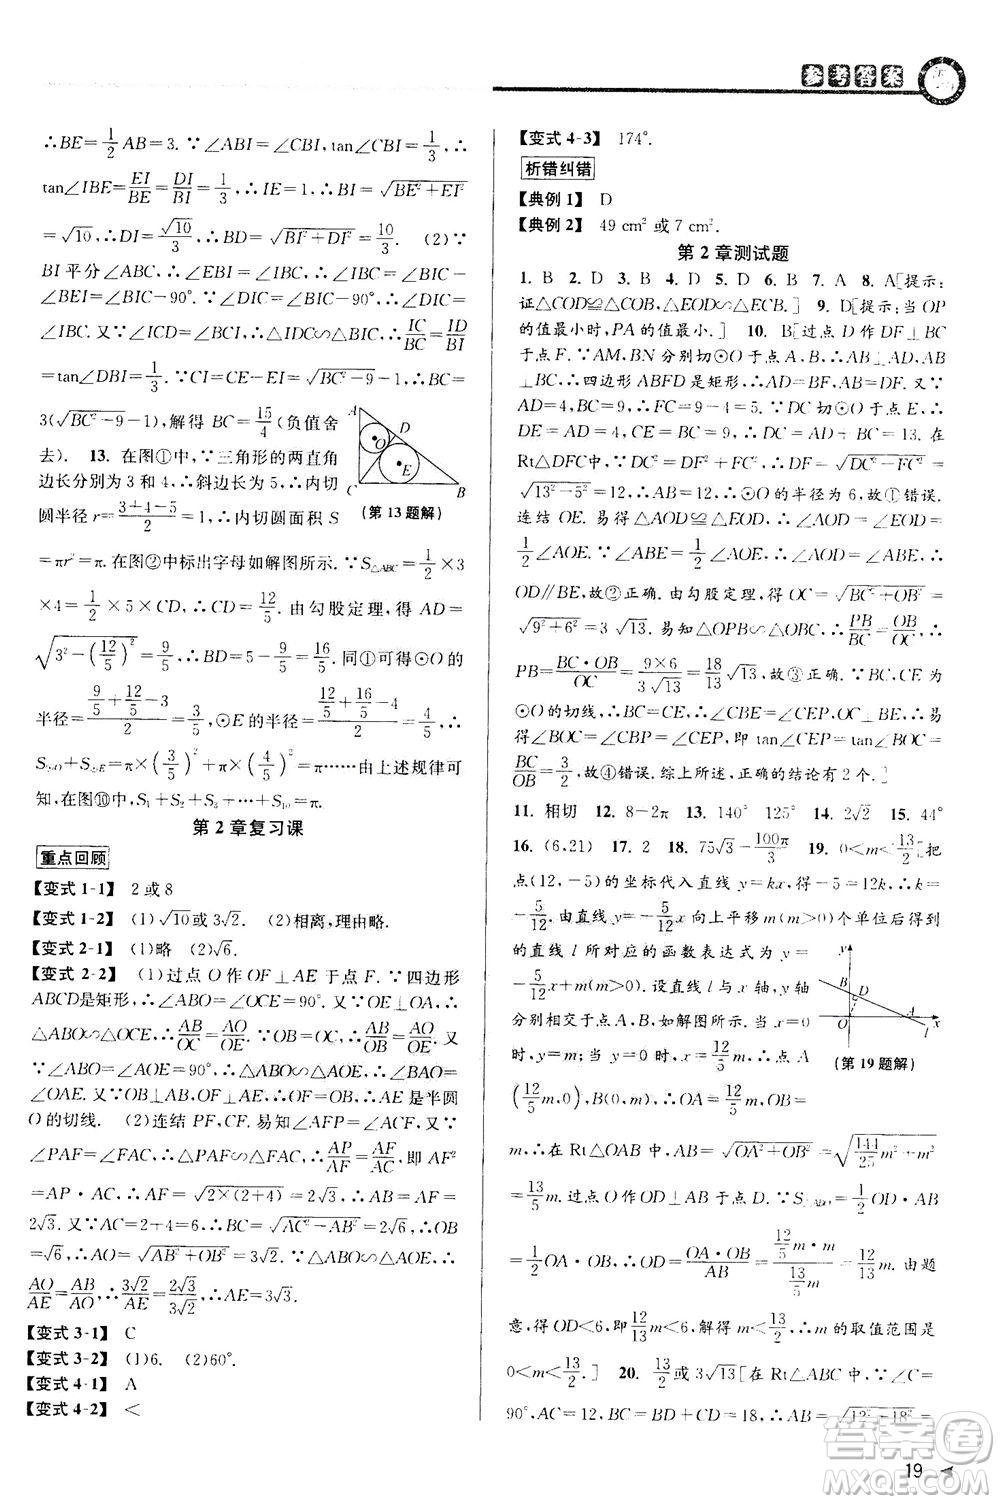 参考答案
∴BE=1/2 AB=3. ∵∠ABI=∠CBI, tan∠CBI=1/3, ∴
tan∠IBE=EI/BE=DI/BI=1/3, ∴IE=1, ∴BI=√(BE²+EI²)
=√10, ∴DI=√10/3, ∴BD=√(BI²+DI²)=10/3. (2)∵
BI平分∠ABC, ∴∠ABC=2∠IBC, ∴∠DIC=
∠IBC. 又∵∠ICD=∠BCI, ∴△IDC∽△BIC, ∴IC/BC=ID/BI=
tan∠DBI=1/3. ∵CI=CE−EI=√(BC²−9)−1, ∴BC=
3(√(BC²−9)−1), 解得 BC=15/4 (负值舍
去). 13. 在图①中, ∵三角形的两直角
边长分别为 3 和 4, ∴斜边长为 5, ∴内切
圆半径 r=(3+4−5)/2=1, ∴内切圆面积 S
A D O E C B
(第 13 题解)
=πr²=π. 在图②中标出字母如解图. ∵S△ABC=1/2×3
×4=1/2×5×CD, ∴CD=12/5. 由勾股定理, 得 AD=
√(3²−(12/5)²)=9/5, ∴BD=5−9/5=16/5. 同①可得⊙O的
半径=(9/5+12/5−3)/2=3/5, ⊙E的半径=(12/5+16/5−4)/2=4/5, ∴
S⊙O+S⊙E=π×(3/5)²+π×(4/5)²=π. 由上述规律可
知, 在图⑩中, S₁+S₂+S₃+…+S₁₀=π.
第 2 章复习课
重点回顾
【变式 1-1】 2 或 8
【变式 1-2】 (1)√10或 3√2. (2)相离, 理由略.
【变式 2-1】 (1)略 (2)√6.
【变式 2-2】 (1)过点 O 作 OF⊥AE 于点 F. ∵四边形
ABCD是矩形, ∴∠ABO=∠OCE=90°. 又∵OE⊥OA, ∴
△ABO∽△OCE, ∴AB/OC=AO/OE. ∵OB=OC, ∴AB/OB=AO/OE. 又
∵∠ABO=∠AOE=90°, ∴△ABO∽△AOE, ∴∠BAO=
∠OAE. 又∵OB⊥AB, OF⊥AE, ∴OF=OB, ∴AE 是半圆
O 的切线. (2)连结 PF, CF. 易知∠AFP=∠ACF. 又∵
∠PAF=∠FAC, ∴△PAF∽△FAC, ∴AP/AF=AF/AC, 即 AF²
=AP·AC, ∴AF=√(2×(2+4))=2√3, ∴AB=AF=
2√3. 又∵AC=2+4=6, ∴BC=√(AC²−AB²)=2√6, ∴OB
=√6, ∴AO=√(AB²+OB²)=3√2. ∵△ABO∽△AOE, ∴
AO/AE=AB/AO, ∴3√2/AE=2√3/3√2, ∴AE=3√3.
【变式 3-1】 C
【变式 3-2】 (1)6. (2)60°.
【变式 4-1】 A
【变式 4-2】 <
【变式 4-3】 174°.
析错纠错
【典例 1】 D
【典例 2】 49 cm² 或 7 cm².
第 2 章测试题
1. B 2. D 3. B 4. D 5. D 6. B 7. A 8. A[提示:
证△COD≌△COB, △EOD∽△ECB.] 9. D[提示: 当 OP
的值最小时, PA 的值最小.] 10. B[过点 D 作 DF⊥BC
于点 F. ∵AM, BN 分别切⊙O于点 A, B, ∴AB⊥AD, AB
⊥BC, ∴四边形 ABFD 是矩形, ∴AD=BF, AB=DF. 又∵
AD=4, BC=9, ∴FC=9−4=5. ∵DC 切⊙O于点 E, ∴
DE=AD=4, CE=BC=9, ∴DC=DE+CE=13. 在
Rt△DFC中, ∵DC²=DF²+FC², ∴AB=DF=√(DC²−FC²)=
√(13²−5²)=12, ∴⊙O的半径为 6, 故①错误.
连结 OE. 易证得△AOD≌△EOD, ∴∠AOD=∠EOD=
1/2∠AOE. ∵∠ABE=1/2∠AOE, ∴∠AOD=∠ABE, ∴
OD∥BE, 故②正确. 由勾股定理, 得 OC=√(BC²+OB²)=
√(9²+6²)=3√13. 易知△OPB∽△OBC, ∴PB/BC=OB/OC, ∴
PB=BC·OB/OC=9×6/(3√13)=18/13√13, 故③正确. ∵BC, CE 是
⊙O的切线, ∴BC=CE, ∴∠CBE=∠CEP, OC⊥BE. 易
得∠BOC=∠CBP=∠CEP, 即 tan∠CEP=tan∠BOC=
BC/OB=3/2, 故④错误. 综上所述, 正确的结论有 2 个.]
11. 相切 12. 8−2π 13. 140° 125° 14. 2√2 15. 44°
16. (6,21) 17. 2 18. 75√3−100π/3 19. 0<m<13/2[把
点(12,−5)的坐标代入直线 y=kx, 得−5=12k, ∴k=
−5/12. 由直线 y=−5/12x 向上平移 m(m>0)个单位后得到
的直线 l 所对应的函数表达式为 y=
−5/12x+m(m>0). 设直线 l 与 x 轴, y 轴
分别相交于点 A, B, 如解图. 当 x=0
时, y=m; 当 y=0 时, x=12/5m, ∴点 A
y B D O A x l
(第 19 题解)
(12/5m,0), B(0,m), 即 OA=12/5m, OB=
m, ∴在 Rt△OAB 中, AB=√(OA²+OB²)=√(144/25m²+m²)=
13/5m. 过点 O 作 OD⊥AB 于点 D. ∵S△AOB=1/2OD·AB
=1/2OA·OB, ∴OD=OA·OB/AB=(12/5m·m)/(13/5m)=12/13m. 由题
意, 得 OD<6, 即12/13m<6, 解得 m<13/2, ∴m 的取值范围是
0<m<13/2.] 20. √13/2或 3√13[在 Rt△ABC 中, ∵∠C=
90°, BC=12, BD+AD=AB=18, ∴AC=√(18²−12²)=
19
答案圈
MXQE.COM